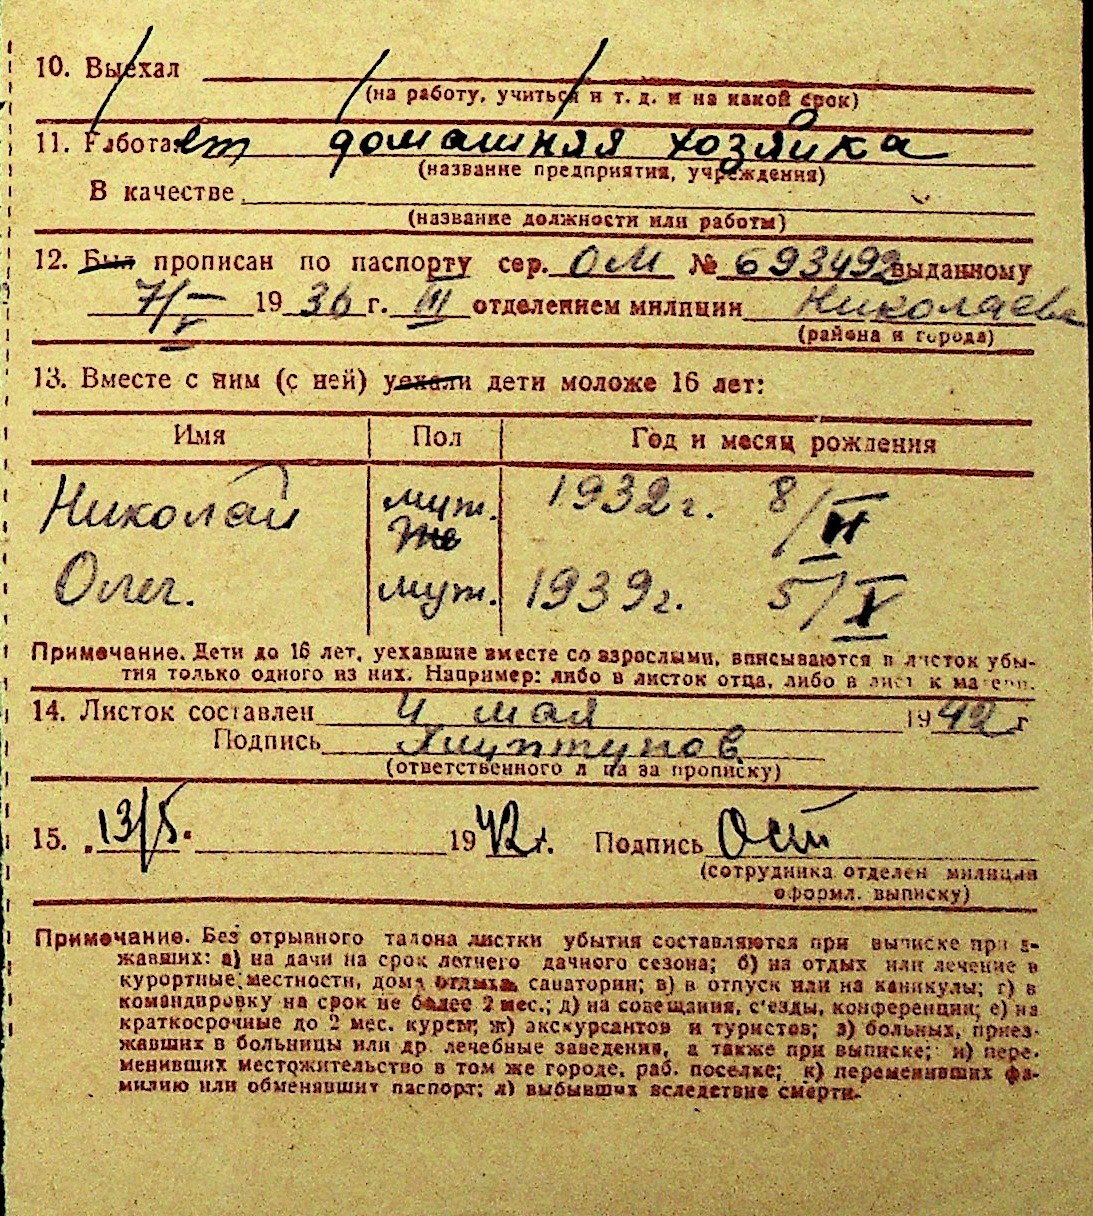 10. Выехал
(на работу, учиться и т. д. и на какой срок)
11. Работает домашняя хозяйка
(название предприятия, учреждения)
В качестве
(название должности или работы)
12. Был прописан по паспорту сер. ОМ № 693493 выданному
7/V 1936 г. III отделением милиции Николаева
(района и города)
13. Вместе с ним (с ней) уехали дети моложе 16 лет:
Имя Пол Год и месяц рождения
Николай муж. 1932 г. 8/VI
Же
Олег. муж. 1939 г. 5/X
Примечание. Дети до 16 лет, уехавшие вместе со взрослыми, вписываются в листок убы-
тия только одного из них. Например: либо в листок отца, либо в лист к матери.
14. Листок составлен 4 мая 1942 г
Подпись
(ответственного л ца за прописку)
15. 13/5. 1942 г. Подпись
(сотрудника отделен милиции
оформл. выписку)
Примечание. Без отрывного талона листки убытия составляются при выписке при з-
жавших: а) на дачи на срок летнего дачного сезона; б) на отдых или лечение в
курортные местности, дома отдыха, санатории; в) в отпуск или на каникулы; г) в
командировку на срок не более 2 мес.; д) на совещания, с'езды, конференции; е) на
краткосрочные до 2 мес. курсы; ж) экскурсантов и туристов; з) больных, приез-
жавших в больницы или др. лечебные заведения, а также при выписке; и) пере-
менивших местожительство в том же городе, раб. поселке; к) переменивших фа-
милию или обменявших паспорт; л) выбывших вследствие смерти.